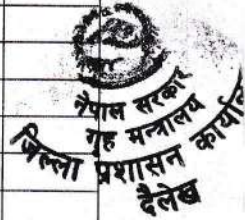 नेपाल सरकार
गृह मन्त्रालय
जिल्ला प्रशासन
दैलेख